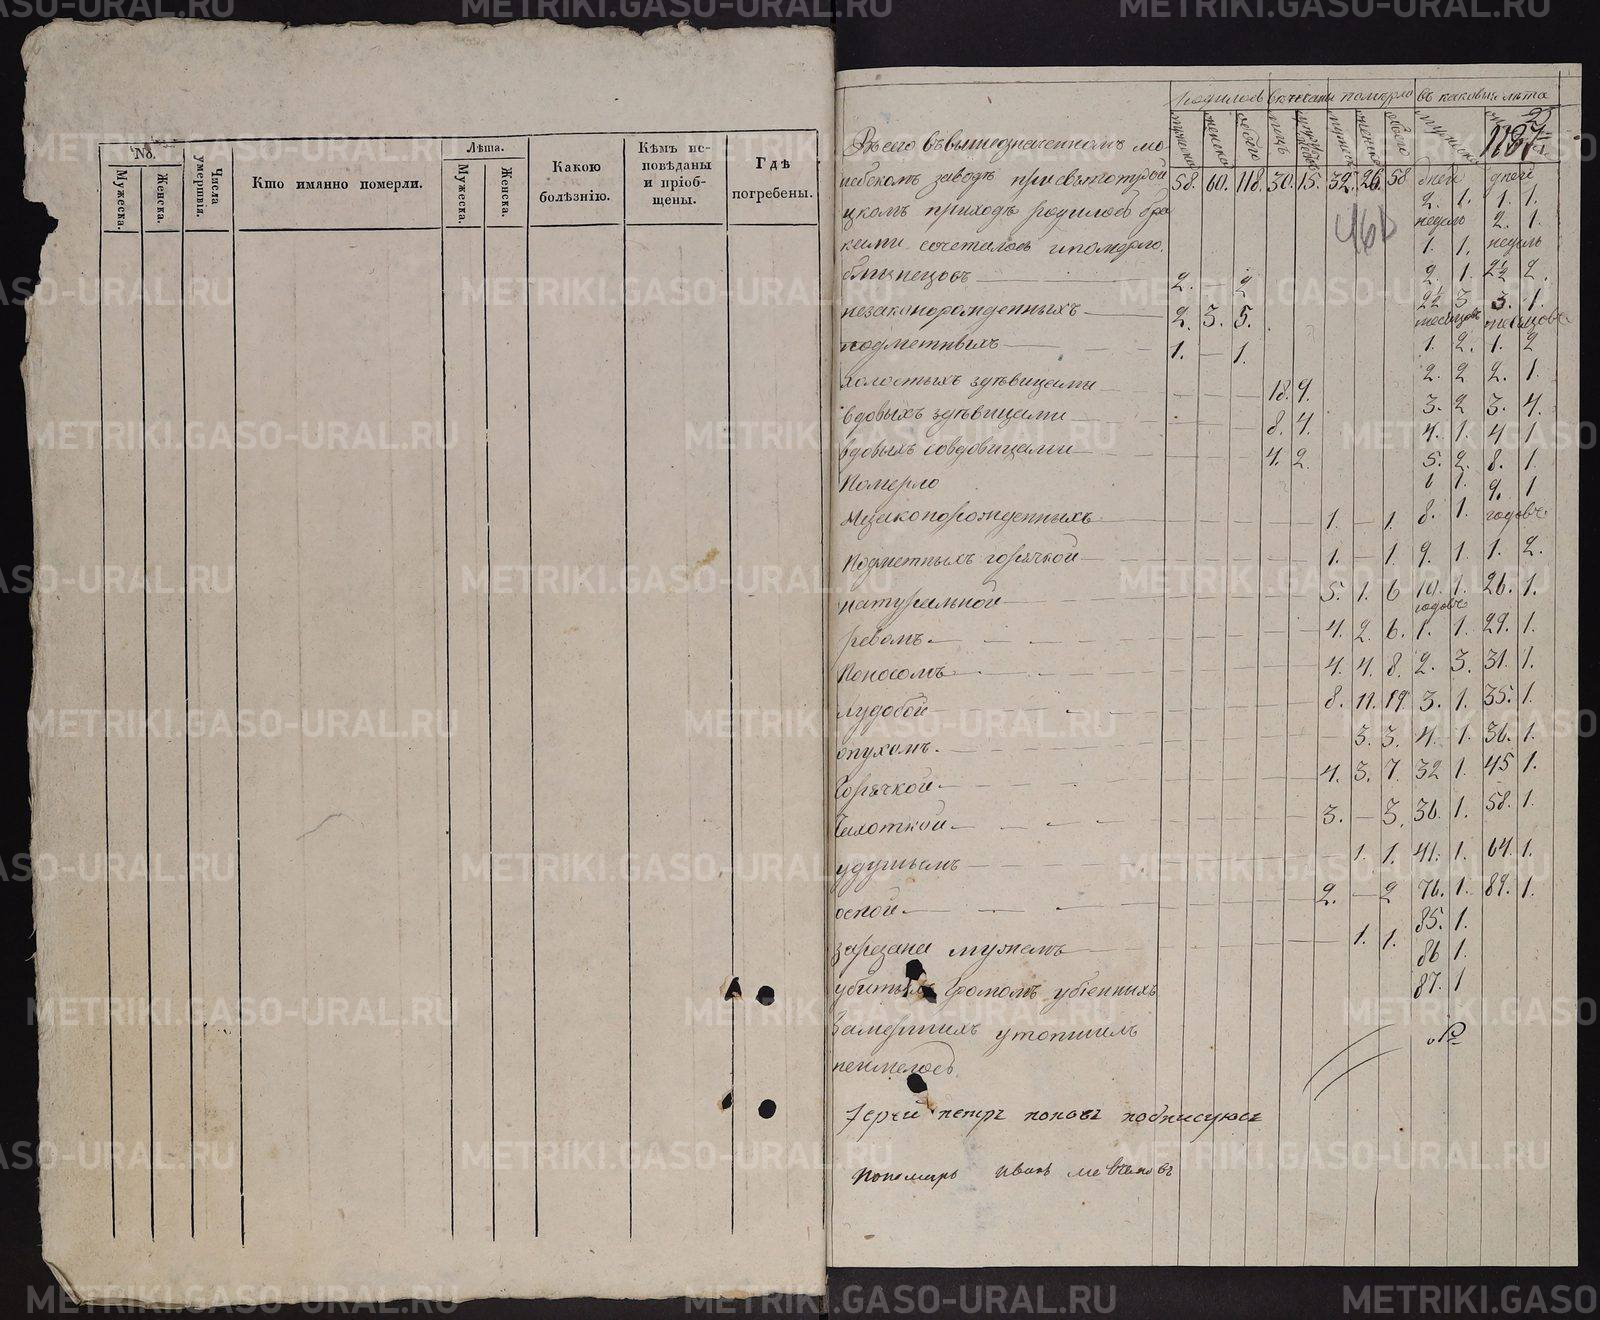 METRIKI.GASO-URAL.RU
No.
Мужеска.
Женска.
Числа умершія.
Кто иманно померли.
Лѣта.
Мужеска.
Женска.
Какою болѣзнію.
Кѣмъ исповѣданы и пріобщены.
Гдѣ погребены.
Родилось
померло
въ каковыя лѣта
мужеска
женска
обоего
женска
обоего
Всего въ вышеозначенномъ
заводѣ при свято 58. 60. 118. 30. 15. 32. 26. 58 дней дней
цкомъ приходѣ родилось бра 2. 1. 1. 1.
недель 2. 1.
ками сочеталось и померло. 1. 1. недель
близнецовъ 2. 2 2. 1. 2½ 2.
незаконорожденныхъ 2. 3. 5. 2½ 3 3. 1.
месяцовъ месяцовъ
подметныхъ 1. — 1. 1. 2. 1. 2
2. 2 2. 1.
холостыхъ здѣвицами 18. 9. 3. 2 3. 4.
вдовыхъ здѣвицами 8. 4. 4. 1. 4 1
вдовыхъ совдовицами 4. 2. 5. 2. 8. 1.
Померло 6 1. 9. 1
Незаконорожденныхъ 1. — 1. 8. 1. годовъ
Подметныхъ горячкой 1. — 1 9. 1. 1. 2.
натуральной 5. 1. 6 10. 1. 26. 1.
годовъ
ревомъ 4. 2. 6. 1. 1. 29. 1.
Поносомъ 4. 4. 8. 2. 3. 31. 1.
худобой 8. 11. 19. 3. 1. 35. 1.
опухомъ 3. 3. 4. 1. 36. 1.
Горячкой 4. 3. 7. 32 1. 45 1.
Чахоткой 3. — 3. 36. 1. 58. 1.
удушьемъ 1. 1. 41. 1. 64. 1.
оспой 2. — 2 76. 1. 89. 1.
85. 1.
зарезана мужемъ 1. 1. 86 1.
87. 1
громомъ убіенныхъ
Замерзшихъ
неимелось
Іерей петръ поповъ подписуюсь
Пономарь Иванъ